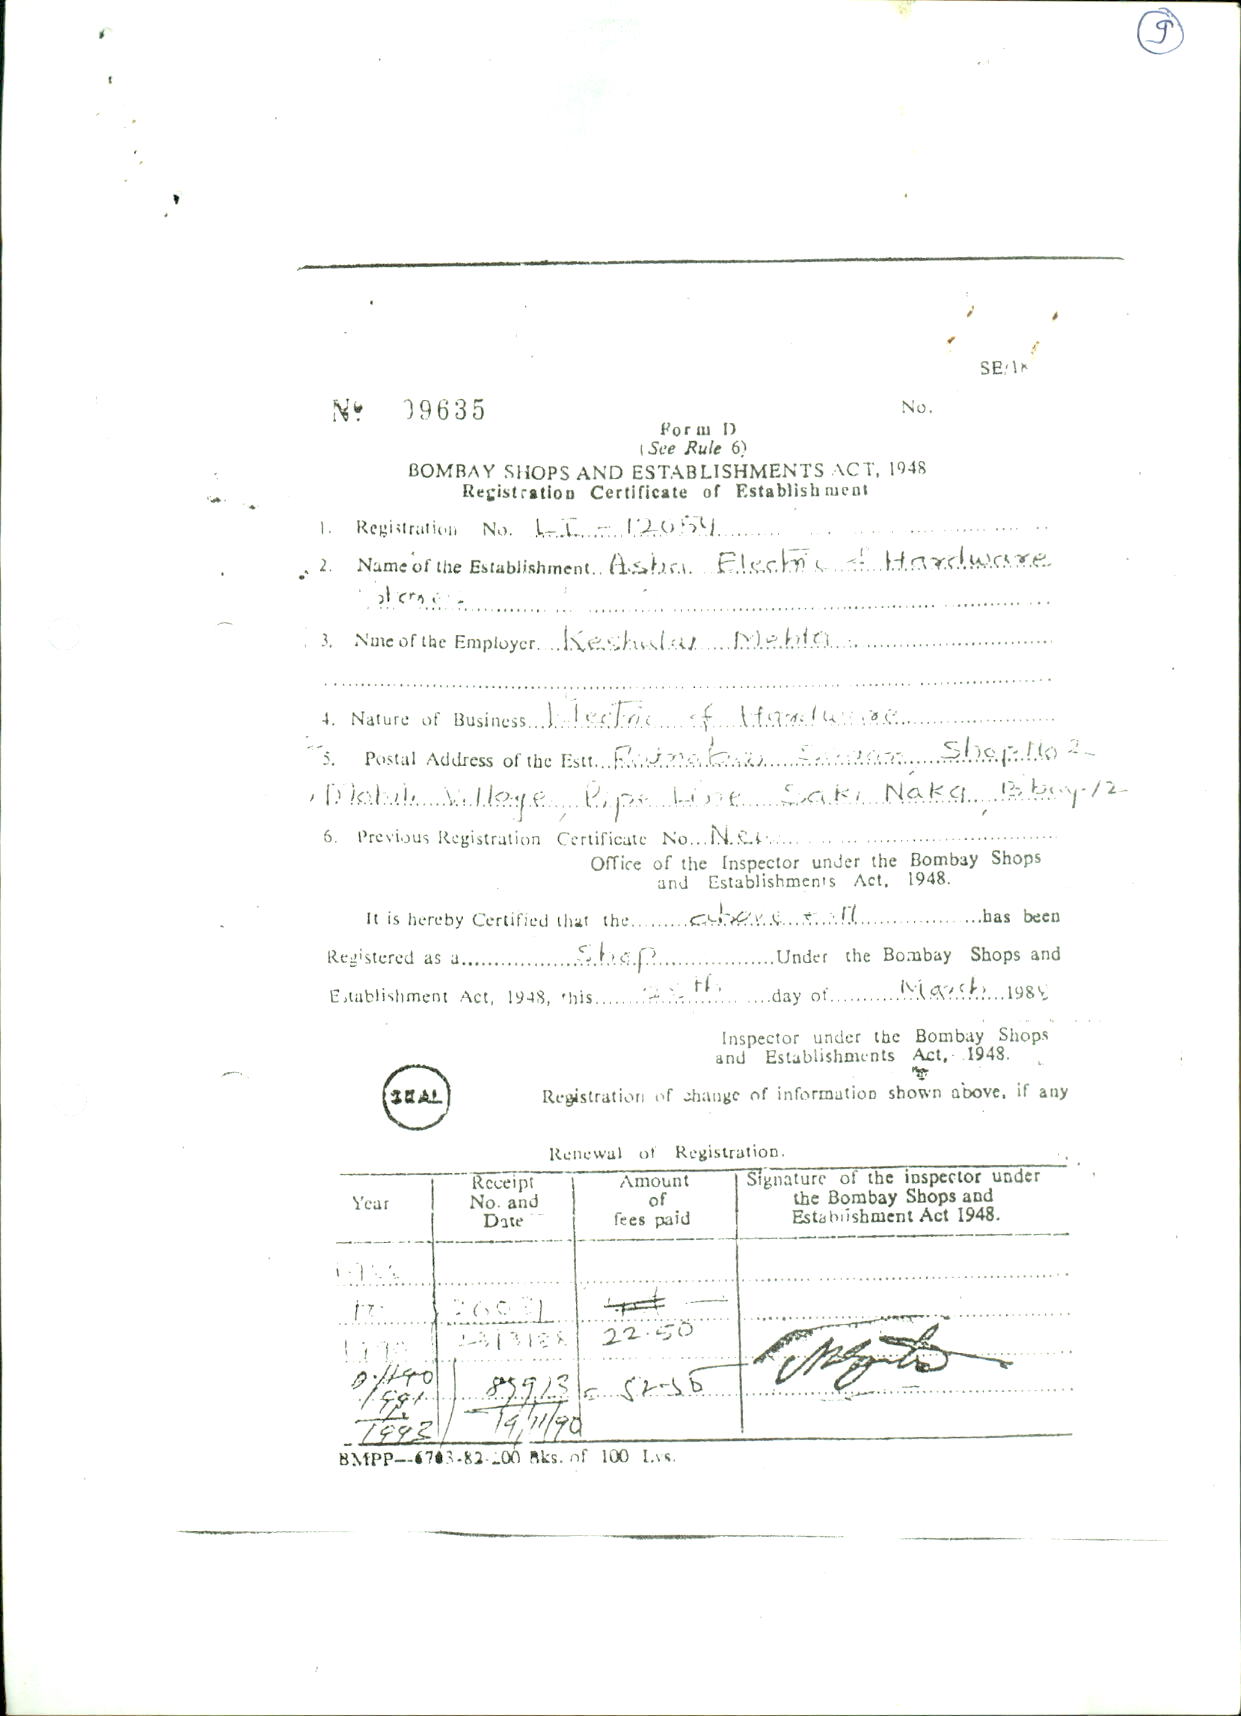 9
SE/1
No. 09635 No.
Form D
(See Rule 6)
BOMBAY SHOPS AND ESTABLISHMENTS ACT, 1948
Registration Certificate of Establishment
1. Registration No. LI-12054
2. Name of the Establishment.. Asha Electric & Hardware
Stores
3. Name of the Employer.... Mehta
4. Nature of Business... Electric & Hardware
5. Postal Address of the Estt... Shop No 2
Village, Pipe Line Saki Naka, Bbay-72
6. Previous Registration Certificate No... New
Office of the Inspector under the Bombay Shops
and Establishments Act, 1948.
It is hereby Certified that the........ above estt ........has been
Registered as a........ Shop ........Under the Bombay Shops and
Establishment Act, 1948, this........ th ....day of........ March ...198
Inspector under the Bombay Shops
and Establishments Act, 1948.
SEAL
Registration of change of information shown above, if any
Renewal of Registration.
Year Receipt No. and Date Amount of fees paid Signature of the inspector under the Bombay Shops and Establishment Act 1948.
1988
26071
22.50
1991 89913 = 52-50
1993 19/11/90
BMPP—6703-82-200 Bks. of 100 Lvs.